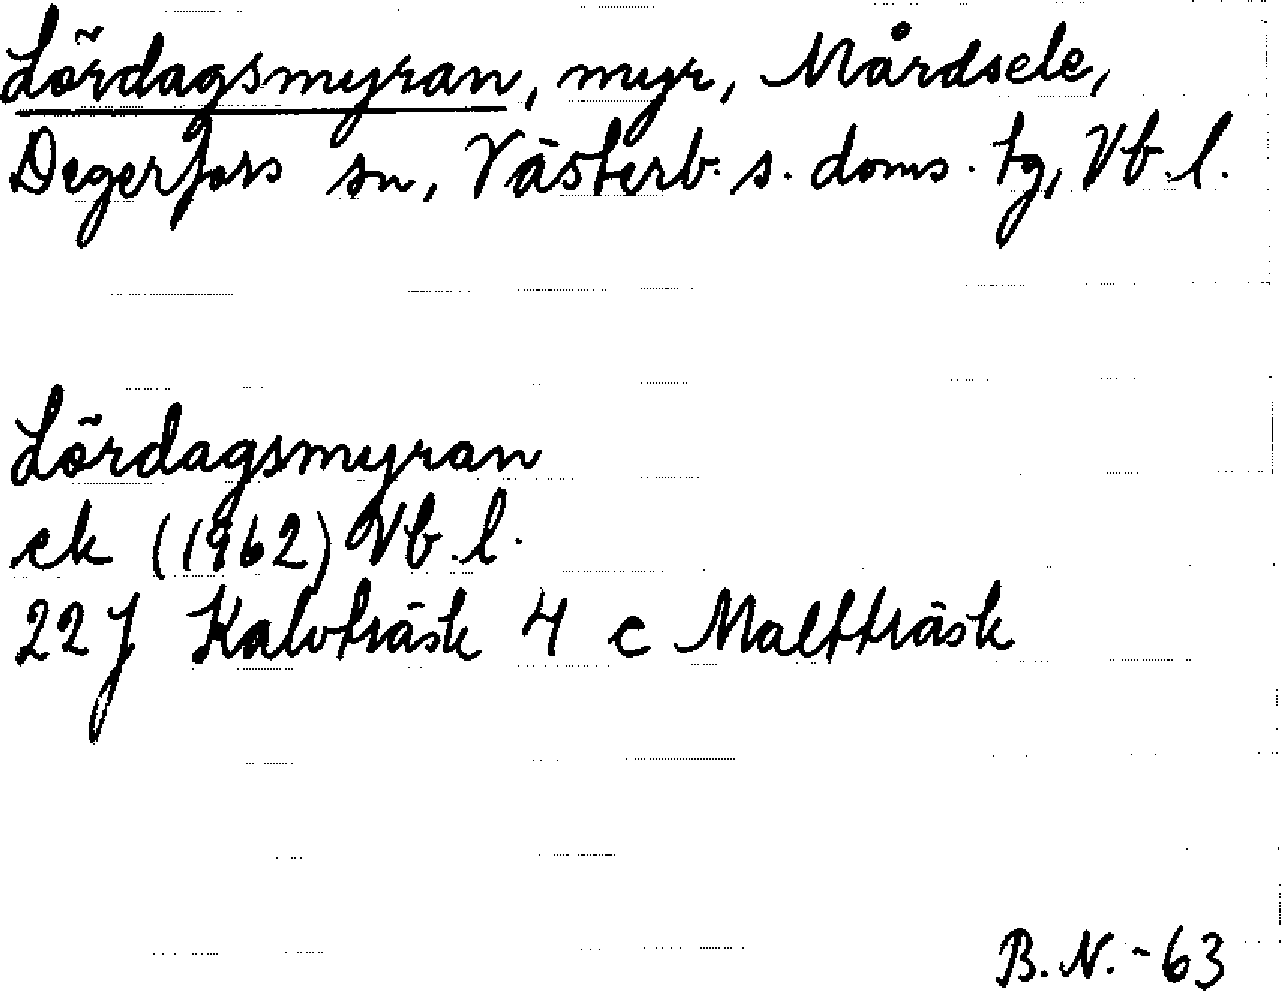 Lördagsmyran, myr, Mårdsele,
Degerfors sn, Västerb. s. doms. tg, Vb. l.
Lördagsmyran
ek (1962) Vb. l.
22 J Kalvträsk 4 c Maltträsk
B.N. - 63